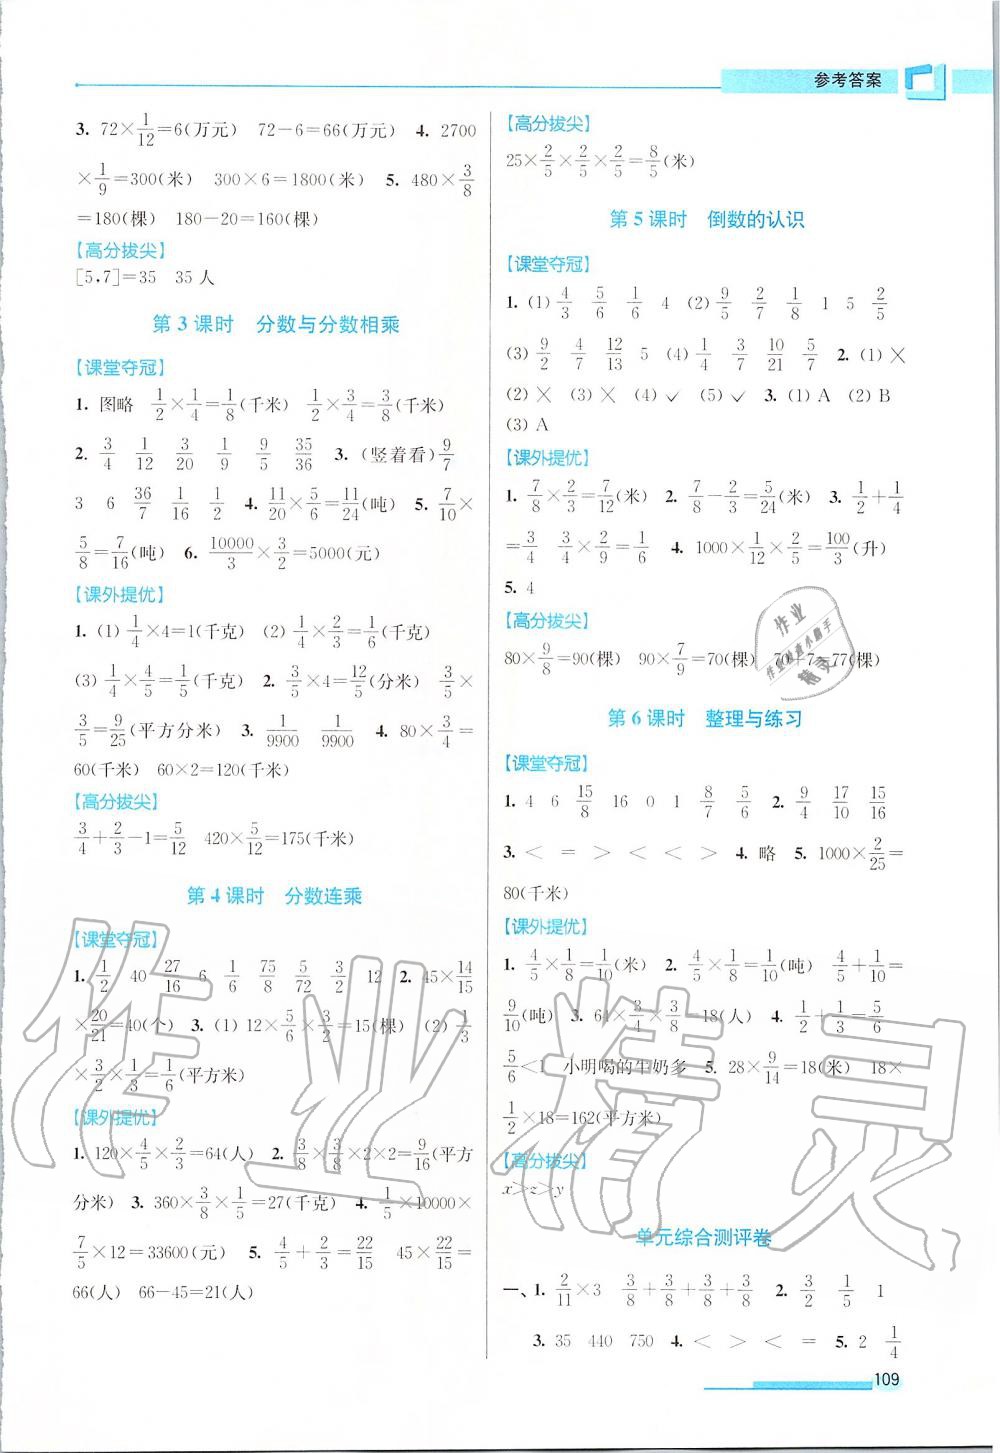 参考答案
3. 72×1/12=6(万元) 72-6=66(万元) 4. 2700
×1/9=300(米) 300×6=1800(米) 5. 480×3/8
=180(棵) 180-20=160(棵)
【高分拔尖】
[5,7]=35 35人
第3课时 分数与分数相乘
【课堂夺冠】
1. 图略 1/2×1/4=1/8(千米) 1/2×3/4=3/8(千米)
2. 3/4 1/12 3/20 1/9 9/5 35/36 3. (竖着看)9/7
3 6 36/7 1/16 1/2 4. 11/20×5/6=11/24(吨) 5. 7/10×
5/8=7/16(吨) 6. 10000/3×3/2=5000(元)
【课外提优】
1. (1) 1/4×4=1(千克) (2) 1/4×2/3=1/6(千克)
(3) 1/4×4/5=1/5(千克) 2. 3/5×4=12/5(分米) 3/5×
3/5=9/25(平方分米) 3. 1/9900 1/9900 4. 80×3/4=
60(千米) 60×2=120(千米)
【高分拔尖】
3/4+2/3-1=5/12 420×5/12=175(千米)
第4课时 分数连乘
【课堂夺冠】
1. 1/2 40 27/16 6 1/6 75/8 5/72 3/2 12 2. 45×14/15
×20/21=40(个) 3. (1) 12×5/6×3/2=15(棵) (2) 1/3
×3/2×1/3=1/6(平方米)
【课外提优】
1. 120×4/5×2/3=64(人) 2. 3/8×3/8×2×2=9/16(平方
分米) 3. 360×3/8×1/5=27(千克) 4. 1/5×10000×
7/5×12=33600(元) 5. 4/5+2/3=22/15 45×22/15=
66(人) 66-45=21(人)
【高分拔尖】
25×2/5×2/5×2/5=8/5(米)
第5课时 倒数的认识
【课堂夺冠】
1. (1) 4/3 5/6 1/6 4 (2) 9/5 2/7 1/8 1 5 2/5
(3) 9/2 4/7 12/13 5 (4) 1/4 3/7 10/21 5/7 2. (1)×
(2)× (3)× (4)✓ (5)✓ 3. (1) A (2) B
(3) A
【课外提优】
1. 7/8×2/3=7/12(米) 2. 7/8-2/3=5/24(米) 3. 1/2+1/4
=3/4 3/4×2/9=1/6 4. 1000×1/12×2/5=100/3(升)
5. 4
【高分拔尖】
80×9/8=90(棵) 90×7/9=70(棵) 70+7=77(棵)
第6课时 整理与练习
【课堂夺冠】
1. 4 6 15/8 16 0 1 8/7 5/6 2. 9/4 17/10 15/16
3. < = > < < > 4. 略 5. 1000×2/25=
80(千米)
【课外提优】
1. 4/5×1/8=1/10(米) 2. 4/5×1/8=1/10(吨) 4/5+1/10=
9/10(吨) 3. 64×3/4×3/8=18(人) 4. 1/2+1/3=5/6
5/6<1 小明喝的牛奶多 5. 28×9/14=18(米) 18×
1/2×18=162(平方米)
【高分拔尖】
x>z>y
单元综合测评卷
一、1. 2/11×3 3/8+3/8+3/8+3/8 2. 3/2 1/5 1
3. 35 440 750 4. < > < = 5. 2 1/4
109
作业
作业检查小助手
精灵
作业精灵